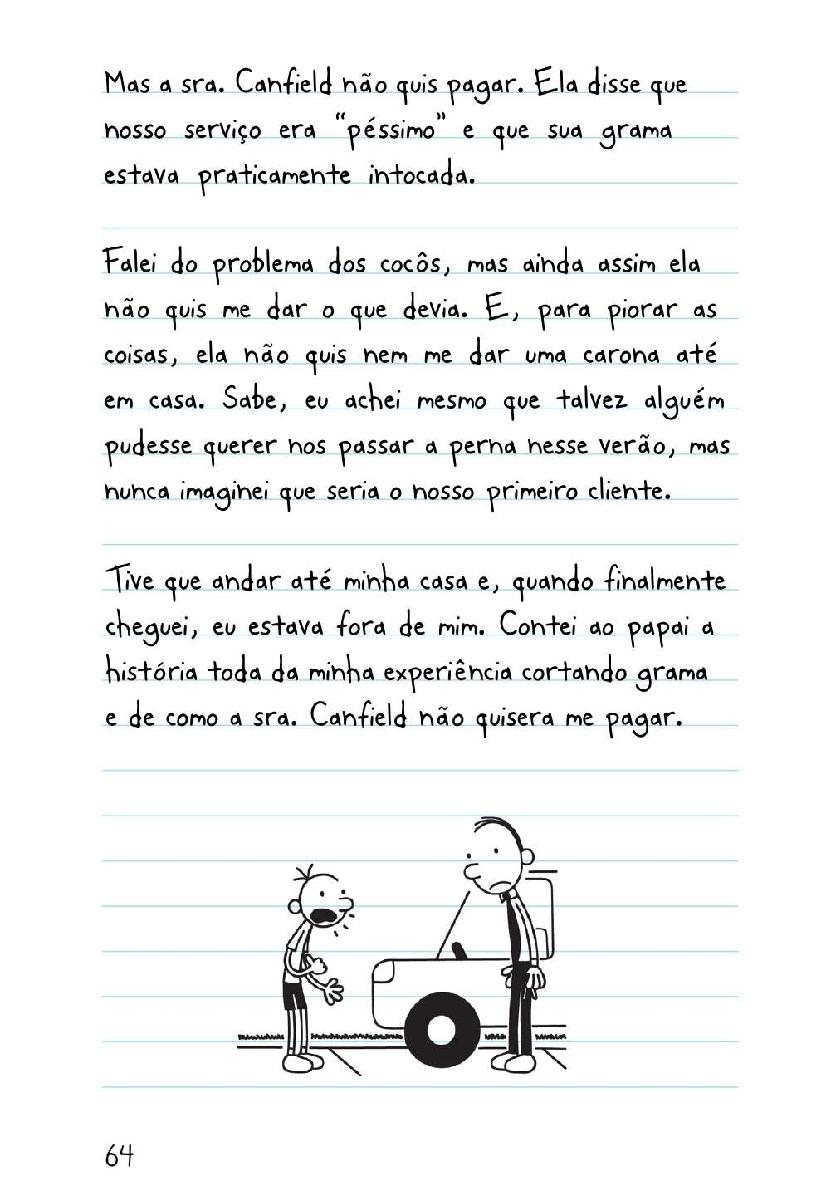 Mas a sra. Canfield não quis pagar. Ela disse que
nosso serviço era “péssimo” e que sua grama
estava praticamente intocada.
Falei do problema dos cocôs, mas ainda assim ela
não quis me dar o que devia. E, para piorar as
coisas, ela não quis nem me dar uma carona até
em casa. Sabe, eu achei mesmo que talvez alguém
pudesse querer nos passar a perna nesse verão, mas
nunca imaginei que seria o nosso primeiro cliente.
Tive que andar até minha casa e, quando finalmente
cheguei, eu estava fora de mim. Contei ao papai a
história toda da minha experiência cortando grama
e de como a sra. Canfield não quisera me pagar.
64